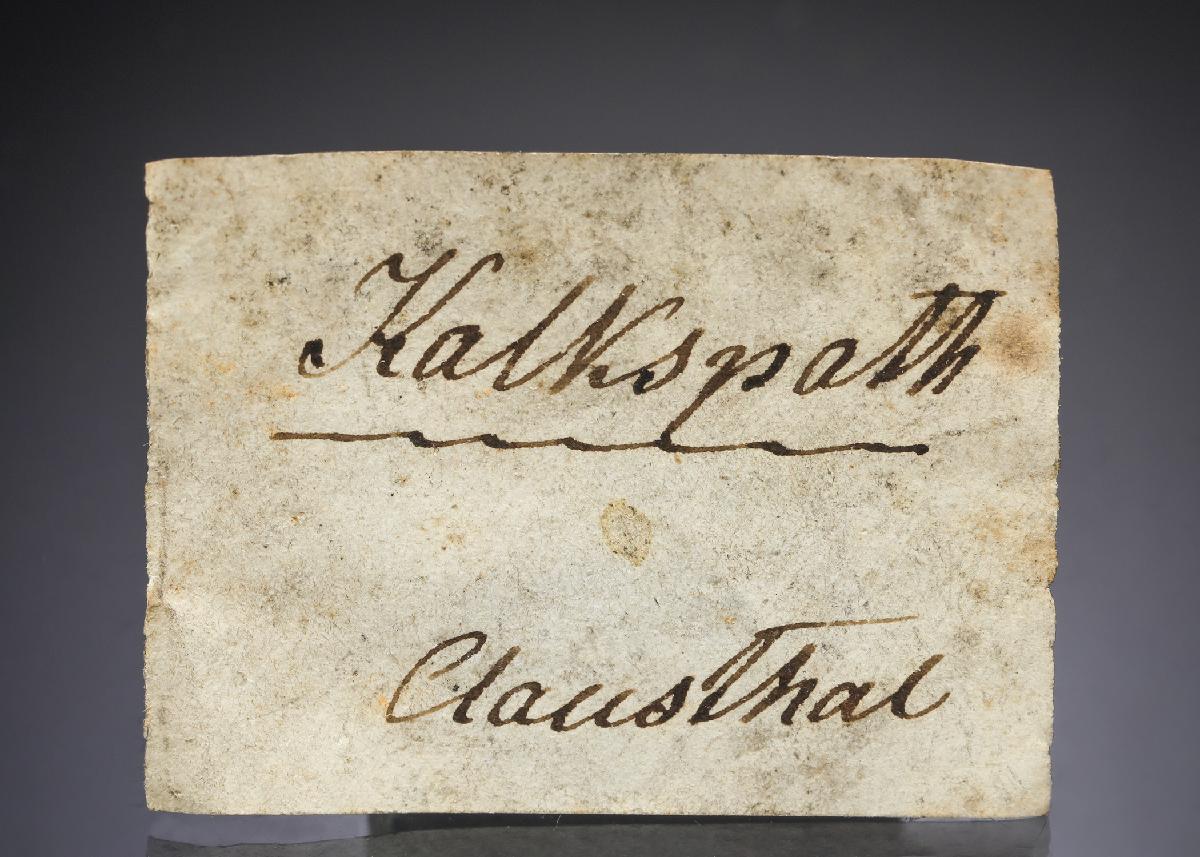 Kalkspath
Clausthal